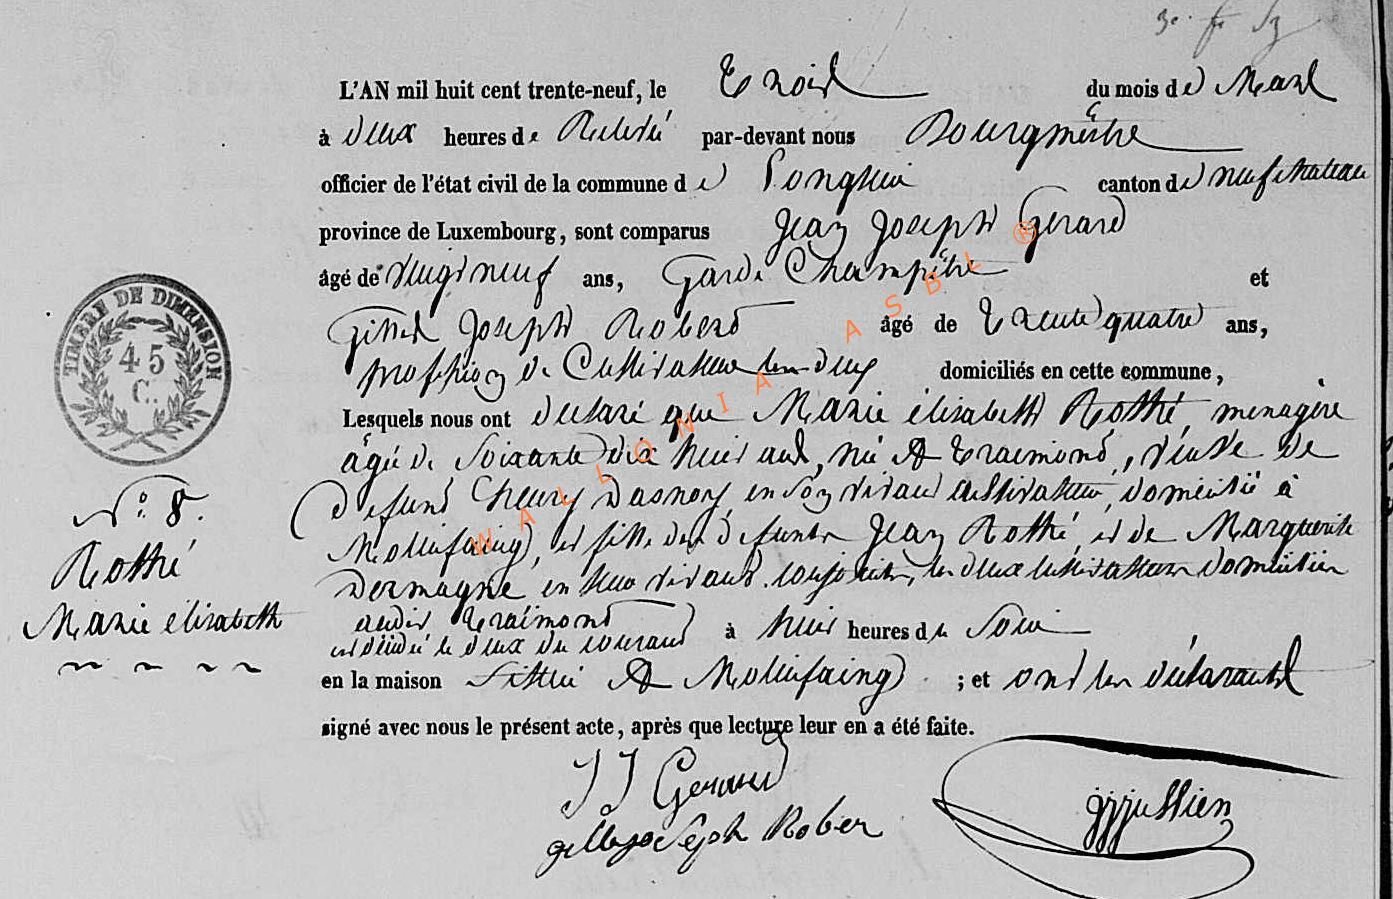 L'AN mil huit cent trente-neuf, le Trois du mois de Mars
à deux heures de Relevé par-devant nous Bourgmêstre
officier de l'état civil de la commune de canton de neufchateau
province de Luxembourg, sont comparus Jean Joseph Gerard
âgé de vingt neuf ans, Garde Champêtre et
Gilles Joseph Robert âgé de Trente quatre ans,
profession de Cultivateur les deux domiciliés en cette commune,
Lesquels nous ont declaré que Marie élisabeth Rothé, menagère
âgée de Soixante dix huit ans, née A Traimond, veuve de
Defunt Henry Dasnoy, en son vivant cultivateur, domicilié à
Mollefaing, et fille des defunts Jean Rothé, et de Marguerite
Dermagne, en leur vivant conjoints, les deux cultivateurs domiciliés
audit Traimont
est décédée le deux du courant à huit heures du Soir
en la maison Sittué A Mollefaing ; et ont les déclarants
signé avec nous le présent acte, après que lecture leur en a été faite.
TIMBRE DE DIMENSION
45
C.
N° 8.
Rothé
Marie élisabeth
J J Gerard
gilles joseph Rober
WALLONIA ASBL ®